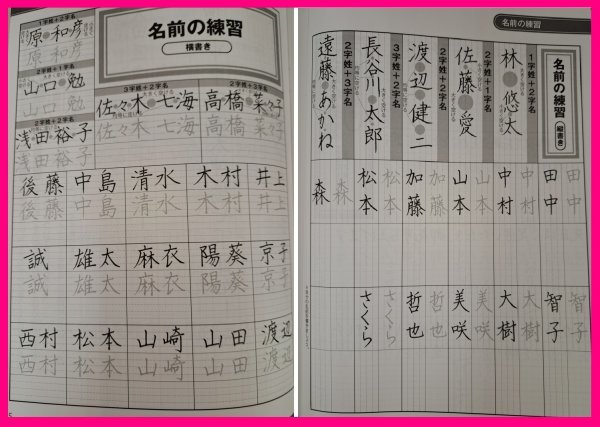 名前の練習
横書き
1字姓+2字名
原 和彦
原 和彦
2字姓+1字名
山口 勉
山口 勉
2字姓+2字名
浅田裕子
浅田裕子
3字姓+2字名
佐々木 七海
佐々木 七海
2字姓+3字名
高橋 菜々子
高橋 菜々子
後藤 中島 清水 木村 井上
後藤 中島 清水 木村 井上
誠 雄太 麻衣 陽葵 京子
誠 雄太 麻衣 陽葵 京子
西村 松本 山崎 山田 渡辺
西村 松本 山崎 山田 渡辺
名前の練習
名前の練習
縦書き
1字姓+2字名
林 悠太
2字姓+1字名
佐藤 愛
2字姓+2字名
渡辺 健二
3字姓+2字名
長谷川 太郎
2字姓+3字名
遠藤 あかね
田中 智子
田中 智子
中村 大樹
中村 大樹
山本 美咲
山本 美咲
加藤 哲也
加藤 哲也
松本 さくら
松本 さくら
森
森